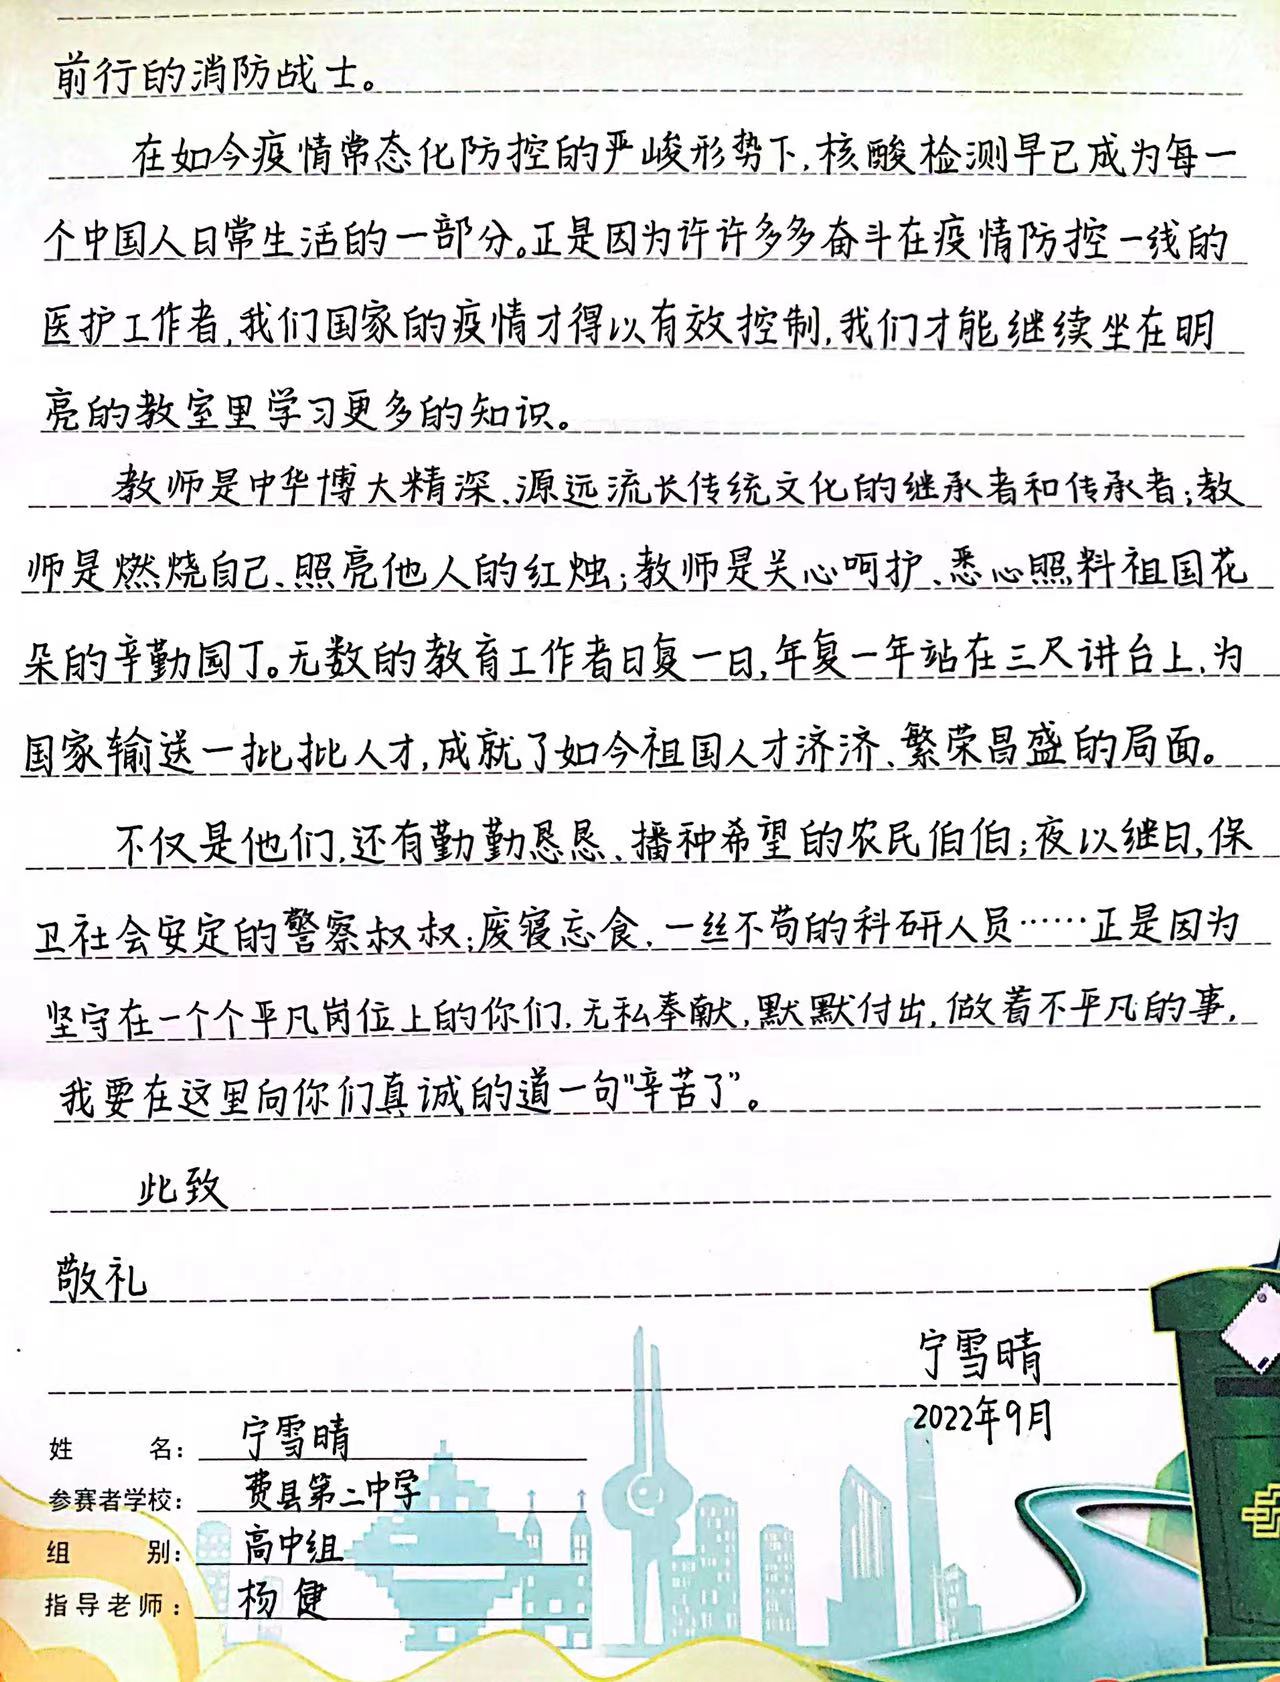 前行的消防战士。
在如今疫情常态化防控的严峻形势下,核酸检测早已成为每一
个中国人日常生活的一部分。正是因为许许多多奋斗在疫情防控一线的
医护工作者,我们国家的疫情才得以有效控制,我们才能继续坐在明
亮的教室里学习更多的知识。
教师是中华博大精深、源远流长传统文化的继承者和传承者;教
师是燃烧自己、照亮他人的红烛;教师是关心呵护、悉心照料祖国花
朵的辛勤园丁。无数的教育工作者日复一日,年复一年站在三尺讲台上,为
国家输送一批批人才,成就了如今祖国人才济济、繁荣昌盛的局面。
不仅是他们,还有勤勤恳恳、播种希望的农民伯伯;夜以继日,保
卫社会安定的警察叔叔;废寝忘食、一丝不苟的科研人员……正是因为
坚守在一个个平凡岗位上的你们,无私奉献,默默付出,做着不平凡的事,
我要在这里向你们真诚的道一句“辛苦了”。
此致
敬礼
宁雪晴
2022年9月
姓 名: 宁雪晴
参赛者学校: 费县第二中学
组 别: 高中组
指导老师: 杨健